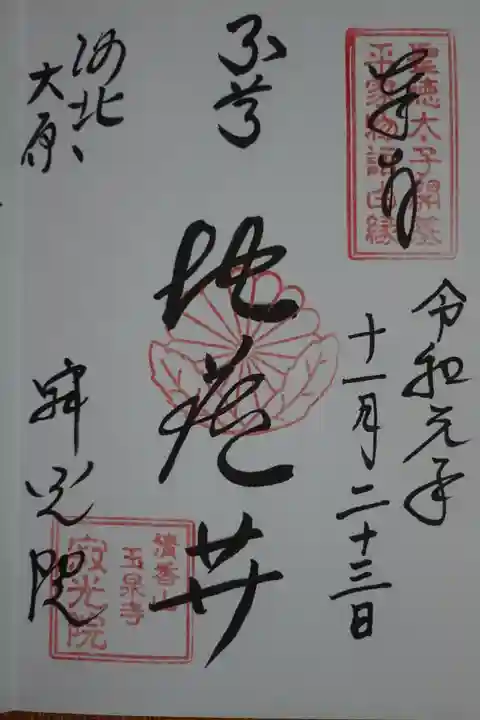 奉拝
聖徳太子開基
平家物語由縁
令和元年
十一月二十三日
本尊
地蔵𦬇
洛北
大原
寂光院
清香山
玉泉寺
寂光院